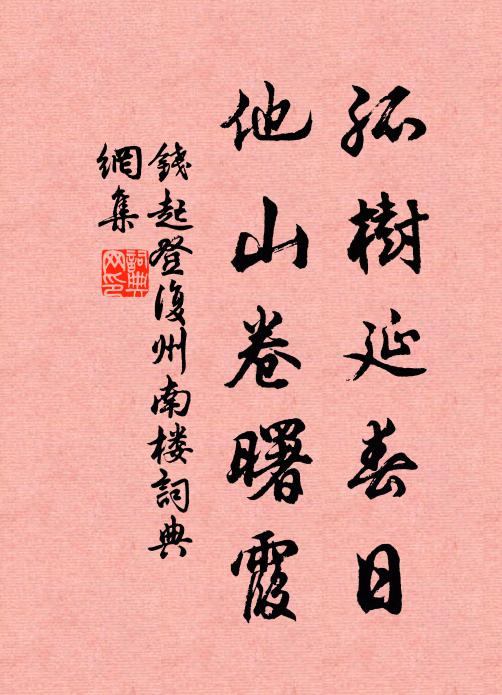 孤樹延春日
他山卷曙霞
錢起登復州南樓詞典
網集
詞典
网印